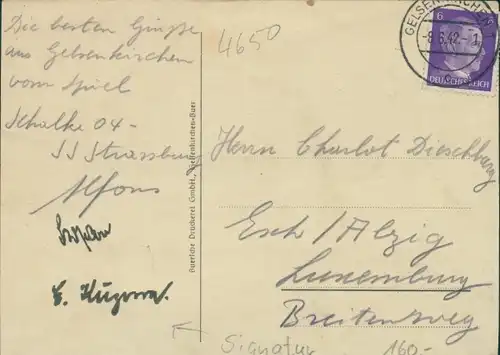 Die besten Grüße
aus Gelsenkirchen
vom Spiel
Schalke 04 -
SS Strassburg
Alfons
Szepan
E. Kuzorra.
4650
Buersche Druckerei GmbH., Gelsenkirchen-Buer
GELSENKIRCHEN
-8.6.42.-1
6
DEUTSCHES REICH
Herrn Charlot Dieschburg
Esch / Alzig
Luxemburg
Breitenweg
Signatur 160-